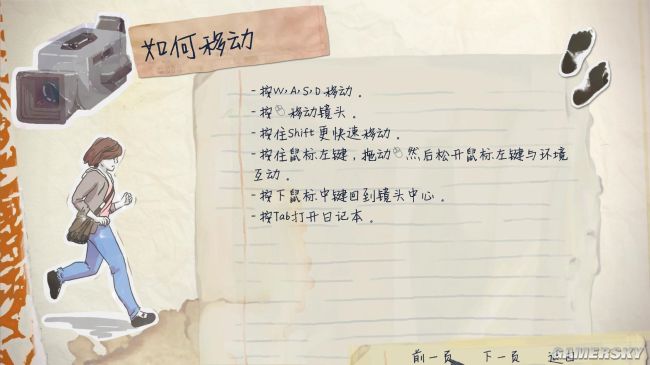 如何移动
-按W,A,S,D移动。
-按移动镜头。
-按住Shift更快速移动。
-按住鼠标左键,拖动然后松开鼠标左键与环境
互动。
-按下鼠标中键回到镜头中心。
-按Tab打开日记本。
前一页 下一页
GAMERSKY